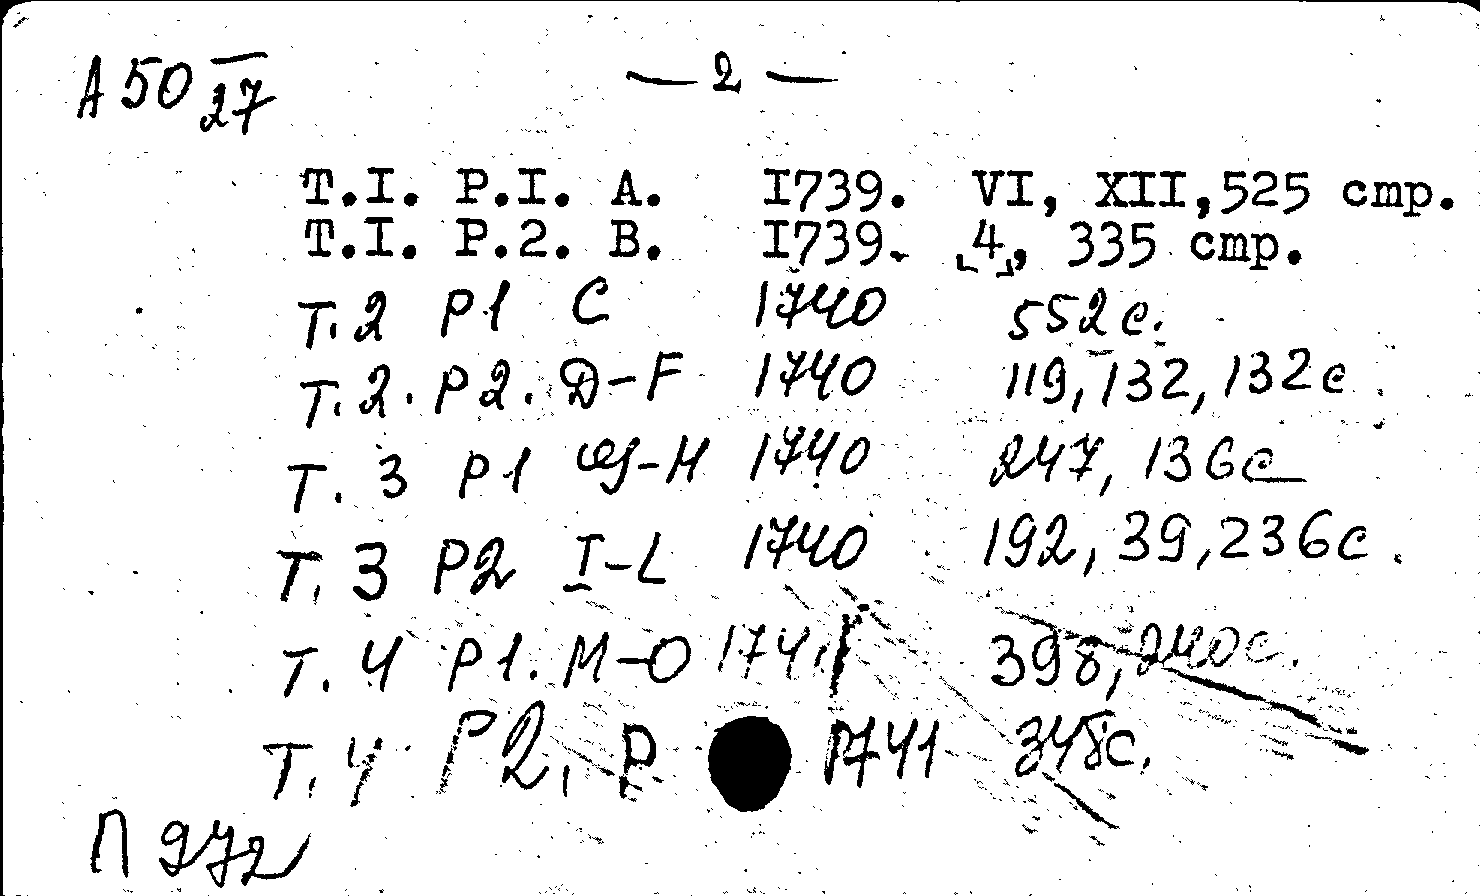 А 50 27
— 2 —
T.I. P.I. A. I739. VI, XII,525 стр.
T.I. P.2. B. I739. [4], 335 стр.
Т.2 P1 C 1740 552 с.
Т.2. P2. D-F 1740 119, 132, 132 с.
Т. 3 P1 G-H 1740 247, 136 с
Т. 3 P2 I-L 1740 192, 39, 236 с.
Т. 4 P1. M-O 1741 398, 240 с.
Т. 4 P2. P 1741 348 с.
П 972